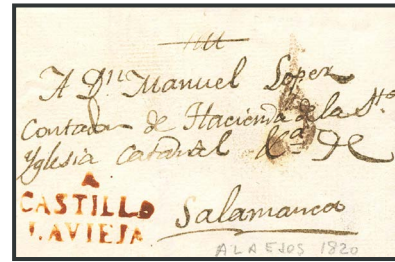 A Dn Manuel Lopez
Contador de Hacienda de la Sta
Yglesia Catedral &a de
A
CASTILLO
LAVIEJA
Salamanca
ALAEJOS 1820